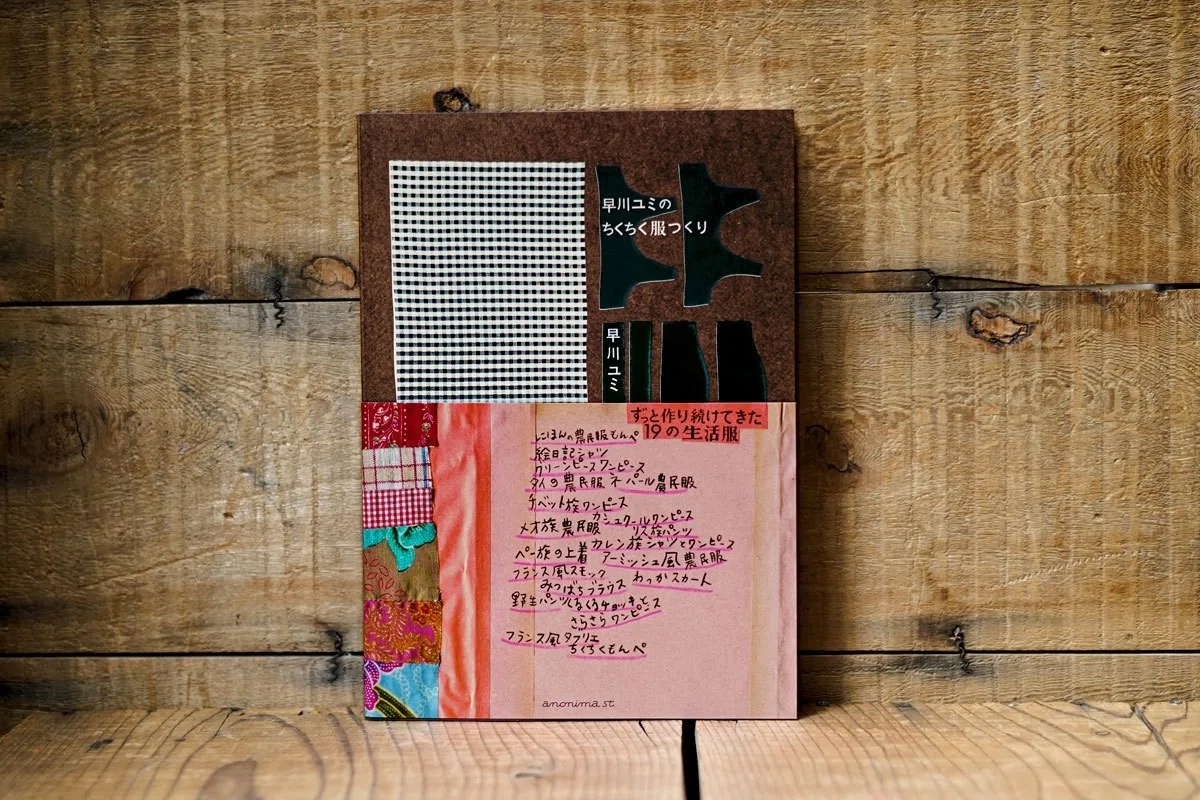 早川ユミの
ちくちく服つくり
早川ユミ
ずっと作り続けてきた
19の生活服
にほんの農民服もんぺ
絵日記シャツ
グリーンピースワンピース
タイの農民服 ネパール農民服
チベット族ワンピース
カシュクールワンピース
メオ族農民服 リス族パンツ
カレン族シャツとワンピース
ペー族の上着 アーミッシュ風農民服
フランス風スモック わっかスカート
みつばちブラウス
野生パンツ くるくるチョッキと
さらさらワンピース
フランス風タブリエ
ちくちくもんぺ
anonima st.